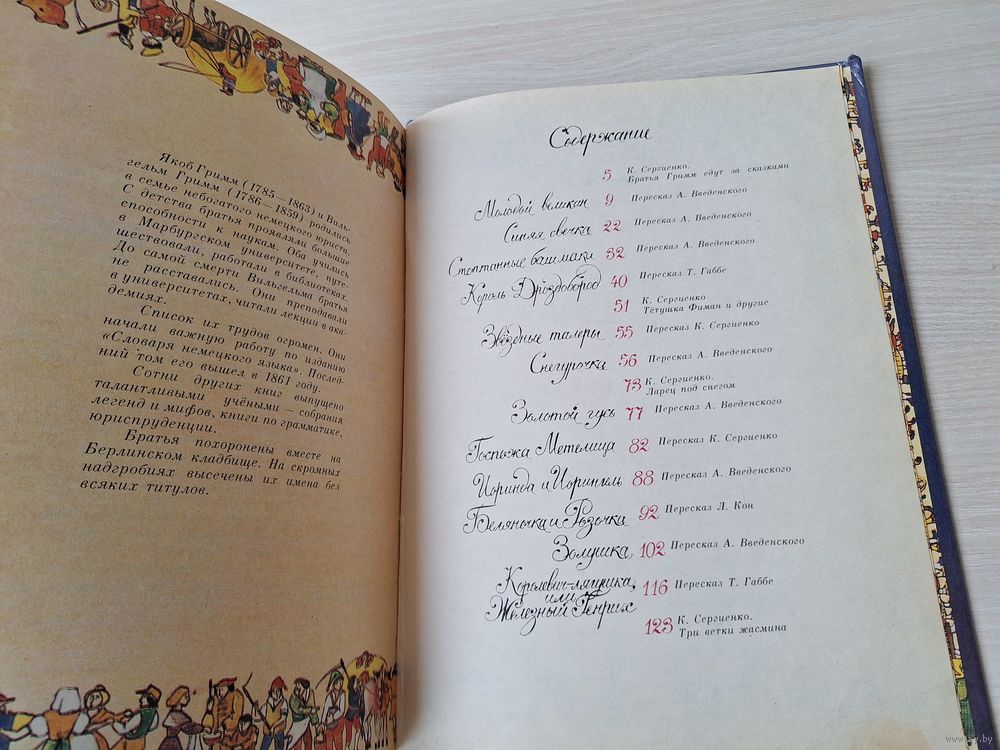 Якоб Гримм (1785—1863) и Виль-
гельм Гримм (1786—1859) родились
в семье небогатого немецкого юриста.
С детства братья проявляли большие
способности к наукам. Оба учились
в Марбургском университете, путе-
шествовали, работали в библиотеках.
До самой смерти Вильгельма братья
не расставались. Они преподавали
в университетах, читали лекции в ака-
демиях.
Список их трудов огромен. Они
начали важную работу по изданию
«Словаря немецкого языка». Послед-
ний том его вышел в 1861 году.
Сотни других книг выпущено
талантливыми учёными — собрания
легенд и мифов, книги по грамматике,
юриспруденции.
Братья похоронены вместе на
Берлинском кладбище. На скромных
надгробиях высечены их имена без
всяких титулов.
Содержание
5 К. Сергиенко.
Братья Гримм едут за сказками
Молодой великан 9 Пересказ А. Введенского
Синяя свечка 22 Пересказ А. Введенского
Стоптанные башмаки 32 Пересказ А. Введенского
Король Дроздобород 40 Пересказ Т. Габбе
51 К. Сергиенко
Тётушка Фиман и другие
Звёздные талеры 55 Пересказ К. Сергиенко
Снегурочка 56 Пересказ А. Введенского
73 К. Сергиенко.
Ларец под снегом
Золотой гусь 77 Пересказ А. Введенского
Госпожа Метелица 82 Пересказ К. Сергиенко
Иоринда и Иорингель 88 Пересказ А. Введенского
Беляночка и Розочка 92 Пересказ Л. Кон
Золушка 102 Пересказ А. Введенского
Королевич-лягушка,
или
Железный Генрих 116 Пересказ Т. Габбе
123 К. Сергиенко.
Три ветки жасмина